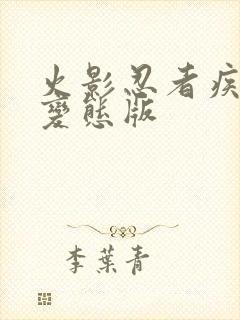 火影忍者疾
變態版
李葉青